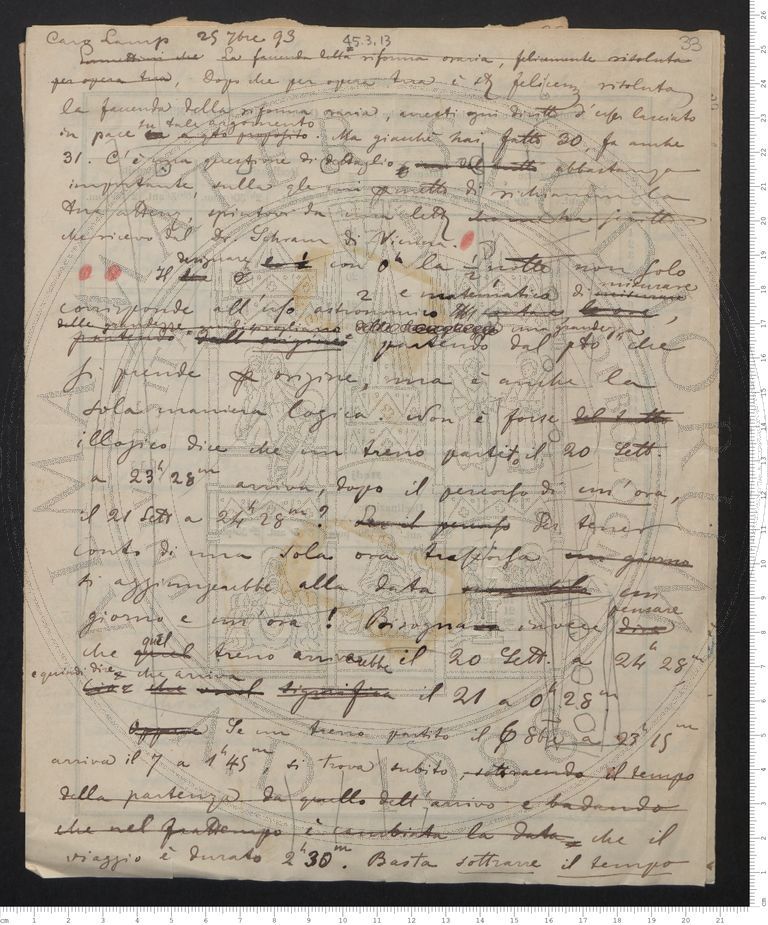 Caro Lamp 25 7bre 93 45.3.13 33
La faccenda della riforma oraria, felicemente risoluta
per opera tua, Dopo che per opera tua è felicem risoluta
la faccenda della riforma oraria, avresti ogni diritto d'esser lasciato
su tale argomento
in pace e a qto proposito. Ma giacchè hai fatto 30, fa anche
31. C'è una questione di dettaglio, del tutto abbastanza
importante, sulla qle mi permetto di richiamare la
tua attenz, spintovi da una lett
che ricevo dal Dr. Schram di Vienna.
designare misurare
Il con 0h la 1/2 notte non solo
corrisponde all'uso astronomico e matematico di
della grandezza una grandezza
partendo dall'origine partendo dal pto che
si prende p origine, ma è anche la
sola maniera logica. Non è forse del tutto
illogico dire che un treno partito il 20 Sett.
a 23h 28m arriva, dopo il percorso di un'ora,
il 21 Sett a 24h 28m? Per tener
conto di una sola ora trascorsa un giorno
si aggiungerebbe alla data un
giorno e un'ora! Bisogna invece dire pensare
che quel treno arriverebbe il 20 Sett. a 24h 28m
e quindi dire che arriva
significa il 21 a 0h 28m
Oppure Se un treno partito il 6 8bre a 23h 15m
arriva il 7 a 1h 45m, si trova subito sottraendo il tempo
della partenza da quello dell'arrivo e badando
che nel frattempo è cambiata la data, che il
viaggio è durato 2h 30m. Basta sottrarre il tempo